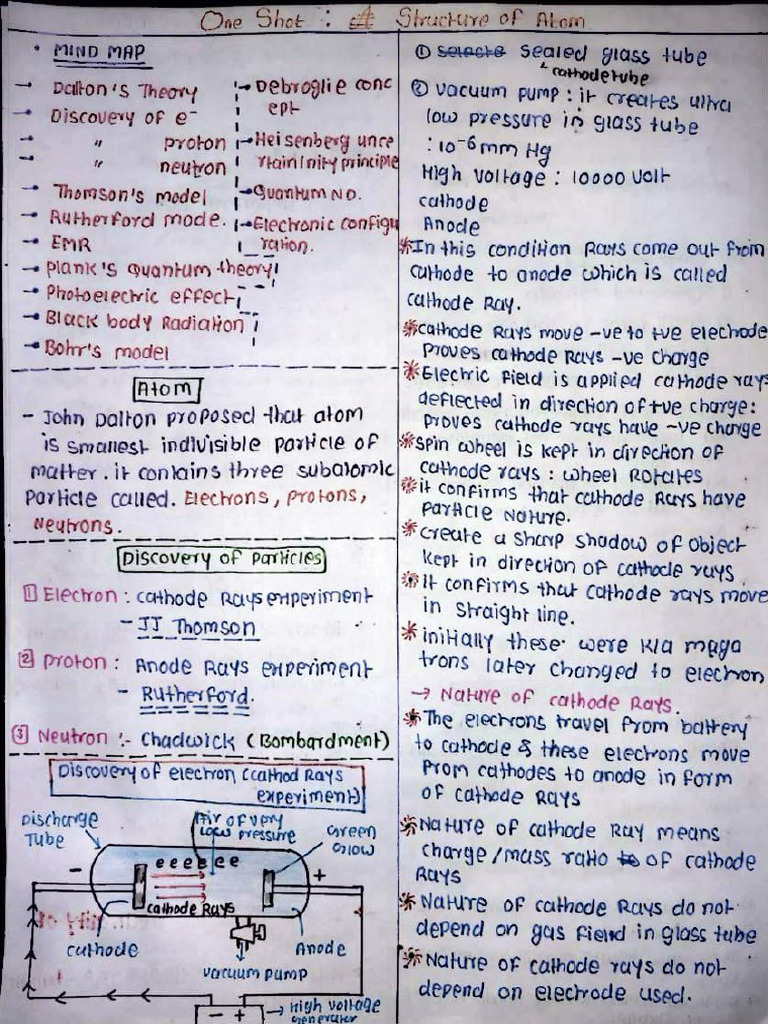 One Shot : Structure of Atom
• MIND MAP
→ Dalton's Theory
→ Discovery of e⁻
→ " proton
→ " neutron
→ Thomson's model
→ Rutherford mode.
→ EMR
→ Plank's quantum theory
→ Photoelectric effect
→ Black body Radiation
→ Bohr's model
→ Debroglie conc
ept
→ Heisenberg unce
rtaininity principle
→ Quantum No.
→ Electronic configu
ration.
Atom
- John Dalton proposed that atom
is smallest indivisible particle of
matter. it contains three subatomic
particle called. Electrons, protons,
Neutrons.
Discovery of particles
1 Electron : cathode Rays experiment
- JJ Thomson
2 proton : Anode Rays experiment
- Rutherford.
3 Neutron :- Chadwick (Bombardment)
Discovery of electron (cathod Rays
experiment)
Discharge
Tube
Air of very
low pressure
Green
Glow
- e e e e e e +
cathode Rays
cathode
vacuum pump
Anode
- +
→ High voltage
generator
① sealed glass tube
cathode tube
② vacuum pump : it creates ultra
low pressure in glass tube
: 10⁻⁶ mm Hg
High voltage : 10000 volt
cathode
Anode
* In this condition Rays come out from
cathode to anode which is called
cathode Ray.
* cathode Rays move -ve to +ve electrode
proves cathode Rays -ve charge
* Electric field is applied cathode rays
deflected in direction of +ve charge:
proves cathode rays have -ve charge
* spin wheel is kept in direction of
cathode rays : wheel Rotates
* it confirms that cathode Rays have
particle Nature.
* create a sharp shadow of object
kept in direction of cathode rays
* It confirms that cathode rays move
in straight line.
* initially these were k/a maga
trons later changed to electron
→ Nature of cathode Rays.
* The electrons travel from battery
to cathode & these electrons move
from cathodes to anode in form
of cathode Rays
* Nature of cathode Ray means
charge/mass ratio of cathode
Rays
* Nature of cathode Rays do not
depend on gas field in glass tube
* Nature of cathode rays do not
depend on electrode used.